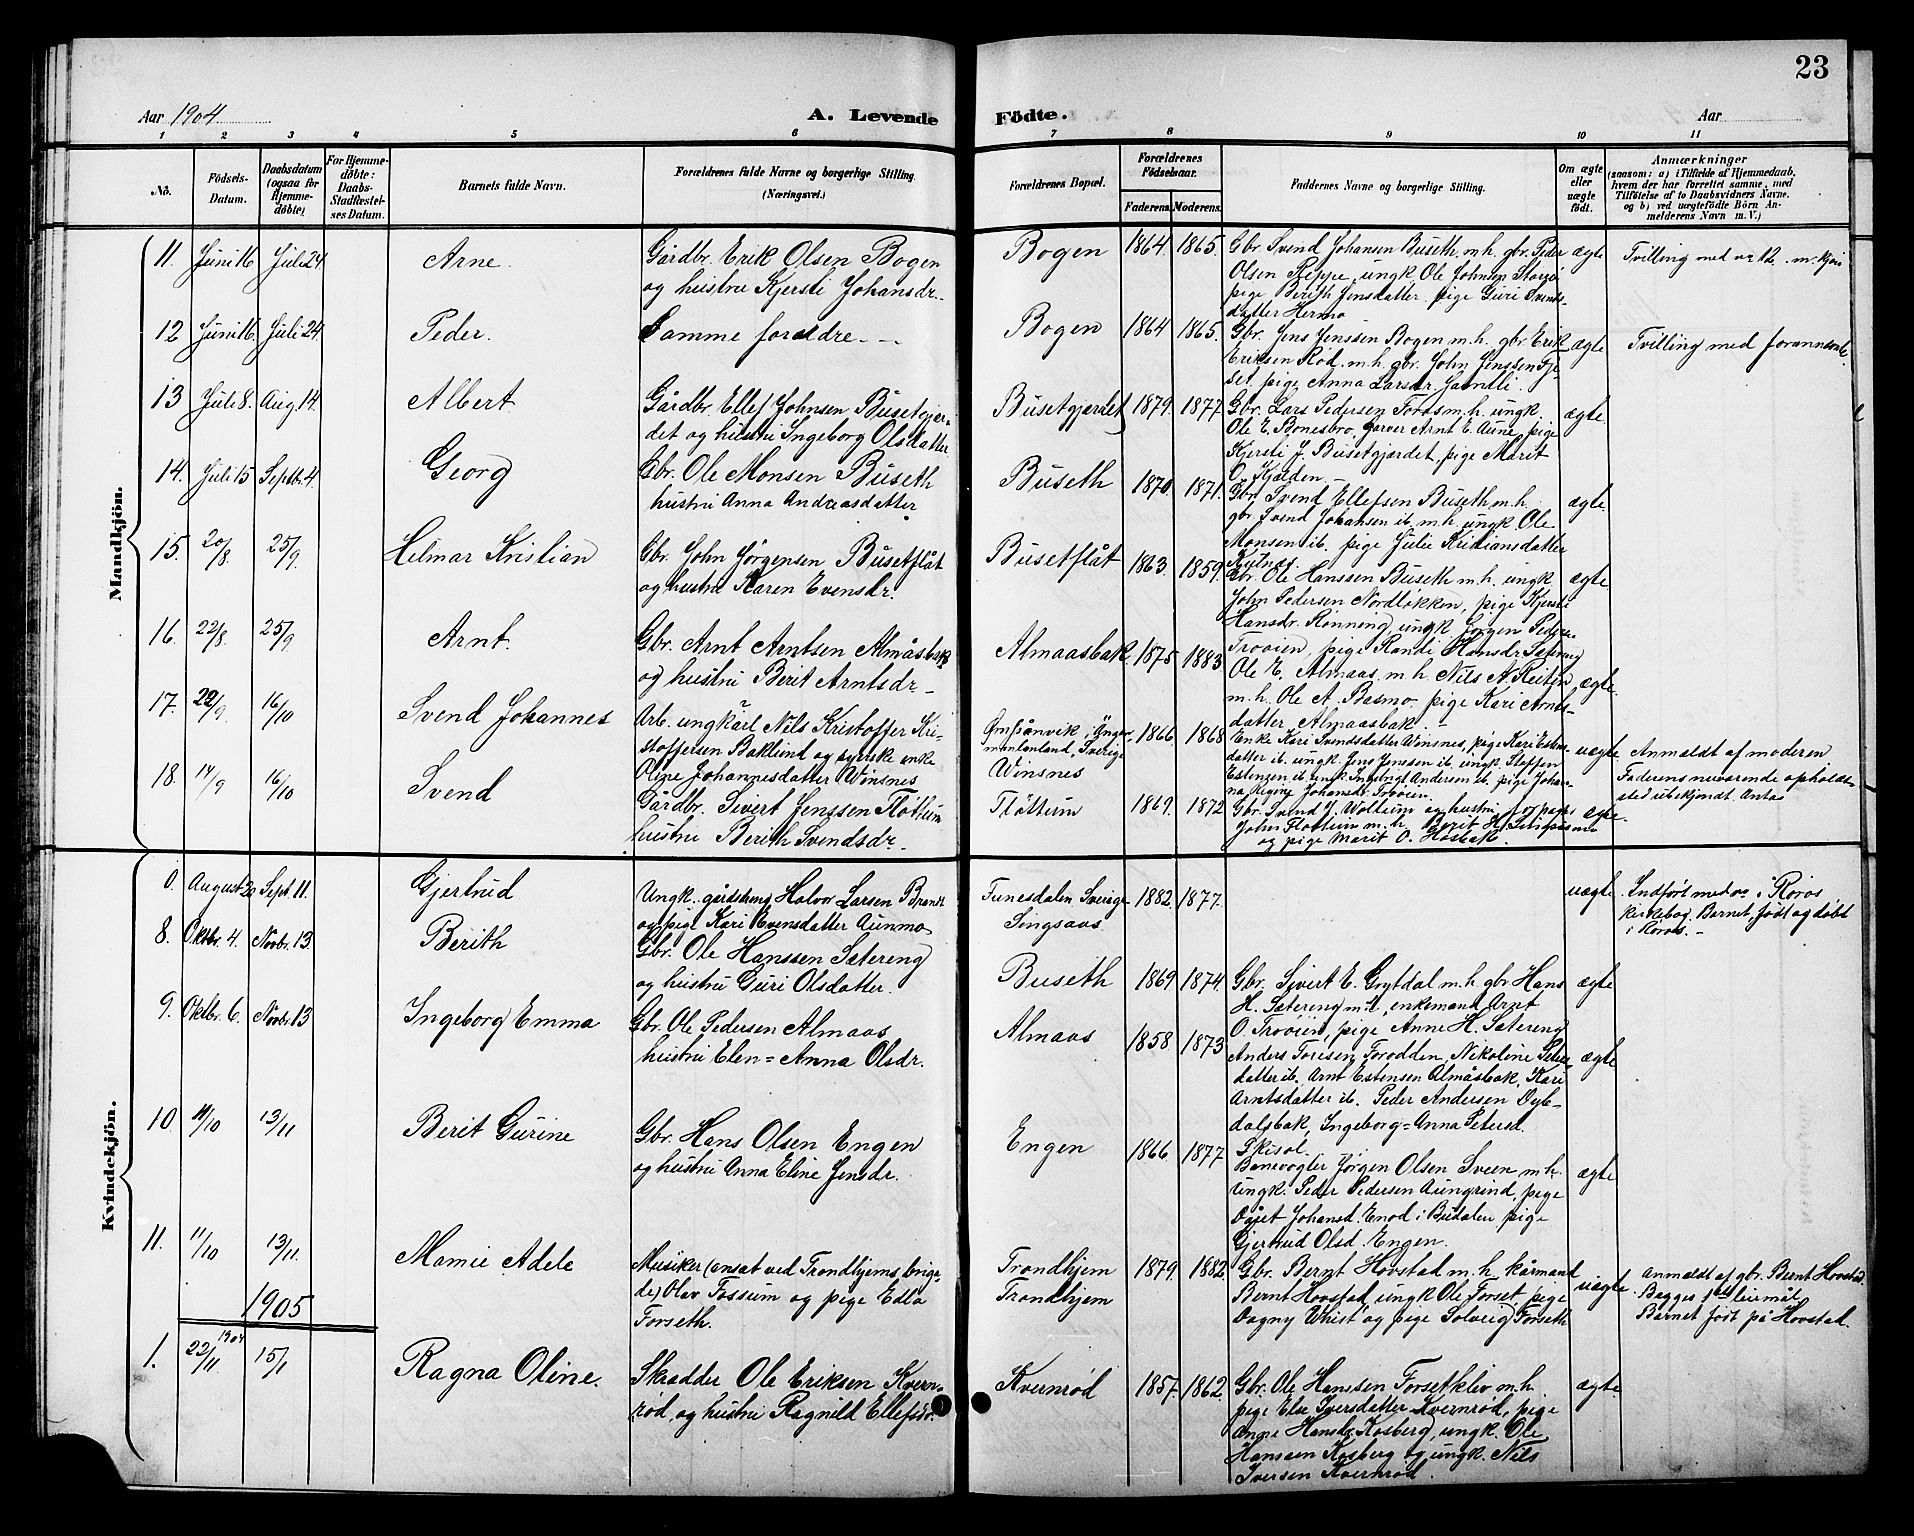 23
Aar 1904
A. Levende
Födte.
Aar
1 2 3 4 5 6 7 8 9 10 11
No.
Födsels-
Datum.
Daabsdatum
(ogsaa for
Hjemme-
döbte)
For Hjemme-
döbte:
Daabs-
Stadfæstel-
ses Datum.
Barnets fulde Navn.
Forældrenes fulde Navne og borgerlige Stilling
(Næringsvei.)
Forældrenes Bopæl.
Forældrenes
Födselsaar.
Faderens. Moderens.
Faddernes Navne og borgerlige Stilling.
Om ægte
eller
uægte
födt.
Anmærkninger
(saasom: a) i Tilfælde af Hjemmedaab,
hvem der har forrettet samme, med
Tilföielse af to Daabsvidners Navne,
og b) ved uægtefödte Börn An-
melderens Navn m. V.)
Mandkjön.
11. Juni 16 Juli 24. Arne.
Gårdbr. Erik Olsen Bogen
og hustru Kjersti Johansdr.
Bogen 1864. 1865.
Gbr. Svend Johansen Buseth m.h. gbr. Peder
Olsen Reppe, ungk Ole Johnsen Storrø
pige Berith Jensdatter, pige Guri Svends-
datter Hermo
ægte
Tvilling med no 12. m. kjøn
12 Juni 16. Juli 24. Peder.
Samme forældre. —
Bogen 1864 1865.
Gbr. Jens Jenssen Bogen m.h. gbr. Erik
Eriksen Rød. m.h. gbr. John Jenssen Fje-
set, pige Anna Larsdr. Jamtli.
ægte
Tvilling med forannævnte
13 Juli 8. Aug. 14. Albert
Gårdbr. Ellef Johnsen Busetgjer-
det og hustru Ingeborg Olsdatter
Busetgjerdet 1879. 1877.
Gbr. Lars Pedersen Foros m.h. ungk.
Ole E. Bonesbro, garver Arnt E. Aune, pige
Kjersti J. Busetgjerdet, pige Marit
O. Kjelden.
ægte
14. Juli 15 Septbr. 4. Georg
Gbr. Ole Monsen Buseth
hustru Anna Andreasdatter
Buseth 1870. 1871.
Gbr. Svend Ellefsen Buseth m.h.
gbr. Svend Johansen ib. m.h. ungk. Ole
Monsen ib. pige Julie Kristiansdatter
ægte.
15. 20/8 25/9. Helmar Kristian
Gbr. John Jørgensen Busetflåt
og hustru Karen Evensdr.
Busetflåt 1863. 1859.
Gbr. Ole Hanssen Buseth m.h. ungk
John Pedersen Nordløkken, pige Kjersti
Hansdr. Rønning ungk Jørgen Peders.
Trøoien, pige Randi Hansdr. Setereng
ægte
16. 22/8. 25/9 Arnt.
Gbr. Arnt Arntsen Almåsbak
og hustru Berit Arntsdr.
Almaasbak 1875 1883
Ole E. Almaas. m.h. Nils A. Reiten
m.h. Ole A. Basmo, pige Kari Arnts-
datter Almaasbak.
ægte.
17. 22/9 16/10 Svend Johannes
Arb. ungkarl Nils Kristoffer Kri-
stoffersen Baklund og syerske enke
Oline Johannesdatter Winsnes
Ångermanland, Sverige
Winsnes 1866. 1868
Enke Kari Svendsdatter Winsnes, pige Kari Esten-
datter ib. ungk Jens Jenssen ib. ungk Steffen
Estenzen ib. ungk Ingebrigt Andersen ib. pige Johan-
na Regine Johansdr. Trøoien.
uægte
Anmeldt af moderen
Faderens nuværende opholds-
sted ubekjendt. Antas
18. 14/9 16/10 Svend
Gårdbr. Sivert Jenssen Fløttum
hustru Berith Svendsdr.
Fløttum 1869. 1872
Gbr. Svend J. Woltum og hustru,
John Fløttum m.h. Berit H.
og pige Marit O. Hosbak.
ægte.
Kvindekjön.
0. August 20 Sept. 11. Gjertrud
Ungk. gårdsdreng Halvor Larsen Brandt
og pige Kari Evensdatter Aunmo
Funesdalen Sverige
Singsaas 1882. 1877.
uægte.
Indført med no 0 i Røros
kirkebog. Barnet født og døbt
i Røros. —
8. Oktbr. 4. Novbr. 13. Berith
Gbr. Ole Hanssen Setereng
og hustru Guri Olsdatter.
Buseth 1869 1874.
Gbr. Sivert E. Grytdal m.h. gbr. Hans
H. Setereng m.h, enkemand Arnt
O. Trøoien, pige Anne H. Setereng
ægte
9. Oktbr. 6. Novbr. 13 Ingeborg Emma
Gbr. Ole Pedersen Almaas
hustru Elen = Anna Olsdr.
Almaas 1858. 1873
Anders Toresen Forodden, Nikoline Peders-
datter ib. Arnt Estensen Almåsbak, Kari
Arntsdatter ib. Peder Andersen Dyb-
dalsbak, Ingeborg = Anna Petersd.
Skisol.
ægte
10. 4/10 13/11 Berit Gurine
Gbr. Hans Olsen Engen
og hustru Anna Eline Jensdr.
Engen 1866 1877.
Banevogter Jørgen Olsen Sveen m.h.
Ungk. Peder Pedersen Aungrind, pige
Dåret Johansd. Enod i Budalen pige
Gjertrud Olsd. Engen.
ægte
11. 11/10 13/11. Mamie Adele
Musiker (ansat ved Trondhjems briga-
de) Olav Fossum og pige Edla
Forseth.
Trondhjem
Trondhjem 1879. 1882.
Gbr. Bernt Hovstad m.h. kårmand
Bernt Hovstad, ungk Ole Forset, pige
Dagny Whist og pige Solveig Forseth
uægte.
Anmeldt af gbr. Bernt Hovstad.
Begges 1ste leiermål
Barnet født på Hovstad.
1905
1. 22/11 1904 15/1 Ragna Oline.
Skrædder Ole Eriksen Kvern-
rød, og hustru Ragnild Ellefsdr.
Kvernrød 1857. 1862.
Gbr. Ole Hanssen Forsetkleiv m.h.
pige Else Iversdatter Kvernrød, pige
Anne Hansdr. Kosberg, ungk. Ole
Hanssen Kosberg og ungk. Nils
Iversen Kvernrød.
ægte